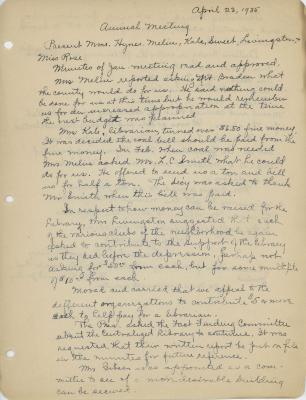 April 22, 1935
Annual Meeting
Present Mmes. Hynes, Melius, Kale, Sweet, Livingston
Miss Rose
Minutes of Jan. meeting read and approved.
Mrs Melius reported asking Mr. Braden what
the county would do for us. He said nothing could
be done for us at this time but he would remember
us for an increased appropriation at the time
the next budget was planned.
Mrs Kale, librarian, turned over $3.50 fine money.
It was decided the coal bill should be paid from the
fine money. In Feb. when coal was needed
Mrs Melius asked Mr. L. C. Smith what he could
do for us. He offered to send us a ton and bill
us for half a ton. The Secy was asked to thank
Mr Smith when this bill was paid.
In respect to how money can be raised for the
library, Mrs Livingston suggested that each
of the various clubs of the neighborhood be again
asked to contribute to the support of the library
as they did before the depression, perhaps not
asking for from each, but for some multiple
of from each.
Moved and carried that we appeal to the
different organizations to contribute $5 or more
each to help pay for a librarian.
The asked the Fact Finding Committee
about the Centralized Library to continue. It was
requested that their written report be put on file
in the minutes for future reference.
Mrs. was appointed as a com-
mittee to see if a more desirable building
can be secured.